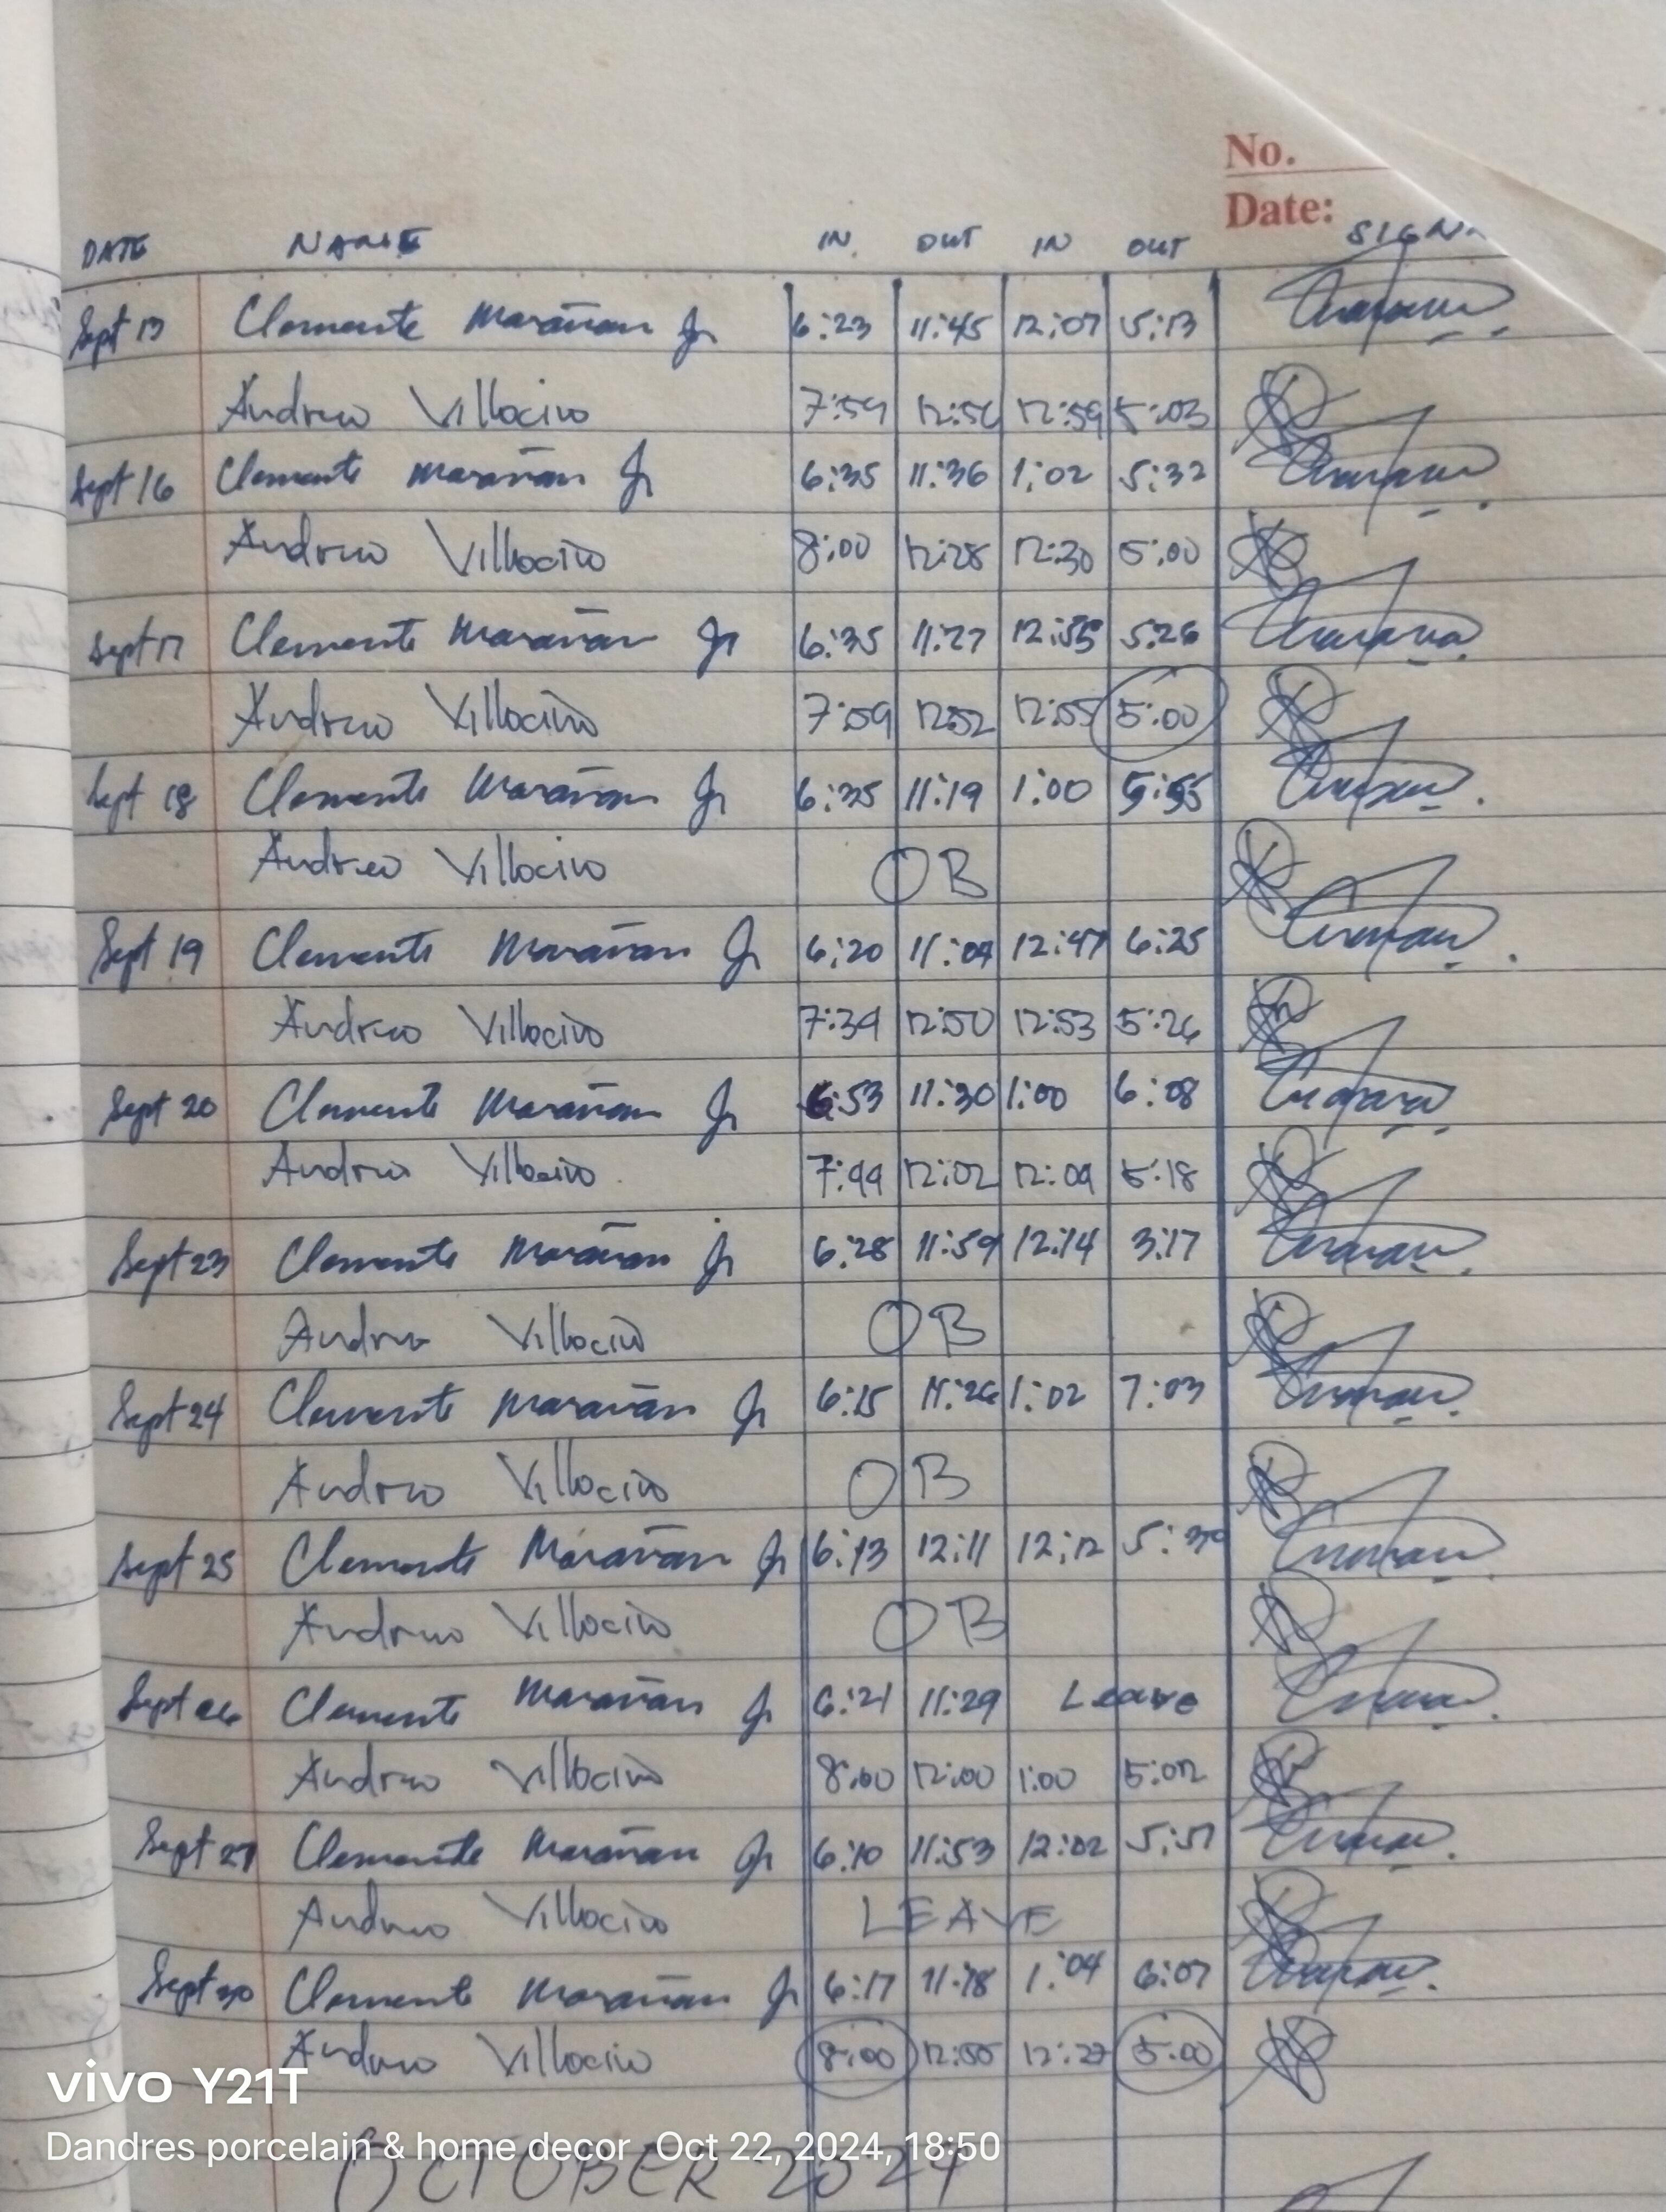 No.
Date:
DATE NAME IN OUT IN OUT SIGN
Sept 13 Clemente Marañan Jr 6:23 11:45 12:07 5:13
Andrew Villocino 7:59 12:56 12:59 5:03
Sept 16 Clemente Marañan Jr 6:35 11:36 1:02 5:32
Andrew Villocino 8:00 12:28 12:30 5:00
Sept 17 Clemente Marañan Jr 6:35 11:27 12:55 5:26
Andrew Villocino 7:59 12:52 12:55 5:00
Sept 18 Clemente Marañan Jr 6:35 11:19 1:00 5:55
Andrew Villocino OB
Sept 19 Clemente Marañan Jr 6:20 11:04 12:47 6:25
Andrew Villocino 7:39 12:50 12:53 5:26
Sept 20 Clemente Marañan Jr 6:53 11:30 1:00 6:08
Andrew Villocino 7:49 12:02 12:09 5:18
Sept 23 Clemente Marañan Jr 6:28 11:59 12:14 3:17
Andrew Villocino OB
Sept 24 Clemente Marañan Jr 6:15 11:26 1:02 7:03
Andrew Villocino OB
Sept 25 Clemente Marañan Jr 6:13 12:11 12:12 5:30
Andrew Villocino OB
Sept 26 Clemente Marañan Jr 6:21 11:29 Leave
Andrew Villocino 8:00 12:00 1:00 5:02
Sept 27 Clemente Marañan Jr 6:10 11:53 12:02 5:57
Andrew Villocino LEAVE
Sept 30 Clemente Marañan Jr 6:17 11:18 1:04 6:07
Andrew Villocino 8:00 12:27 5:00
vivo Y21T
Dandres porcelain & home decor Oct 22, 2024, 18:50
OCTOBER 2024